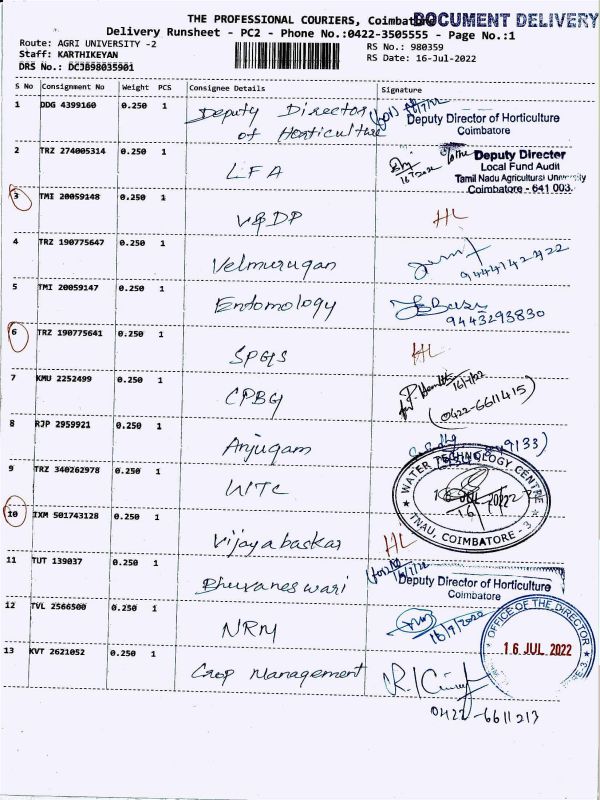 THE PROFESSIONAL COURIERS, Coimbatore
DOCUMENT DELIVERY
Delivery Runsheet - PC2 - Phone No.:0422-3505555 - Page No.:1
Route: AGRI UNIVERSITY -2
RS No.: 980359
Staff: KARTHIKEYAN
RS Date: 16-Jul-2022
DRS No.: DCJB98035901
S No Consignment No Weight PCS Consignee Details Signature
1 DDG 4399160 0.250 1 Deputy Director
of Horticulture
Deputy Director of Horticulture
Coimbatore
2 TRZ 274005314 0.250 1 LFA
Deputy Director
Local Fund Audit
Tamil Nadu Agricultural University
Coimbatore - 641 003.
3 TMI 20059148 0.250 1 V&DP HL
4 TRZ 190775647 0.250 1 Velmurugan
9444142422
5 TMI 20059147 0.250 1 Entomology
9443293830
6 TRZ 190775641 0.250 1 SPGS HL
7 KMU 2252499 0.250 1 CPBG
16/7/22
(0422-6611415)
8 RJP 2959921 0.250 1 Anjugam
9 TRZ 340262978 0.250 1 WTC
WATER TECHNOLOGY CENTRE
TNAU, COIMBATORE - 3
10 IXM 501743128 0.250 1 Vijayabaskar HL
11 TUT 139037 0.250 1 Bhuvaneswari
Deputy Director of Horticulture
Coimbatore
12 TVL 2566500 0.250 1 NRM
16/7/2022
OFFICE OF THE DIRECTOR
16 JUL 2022
13 KVT 2621052 0.250 1 Crop Management
0422-6611213